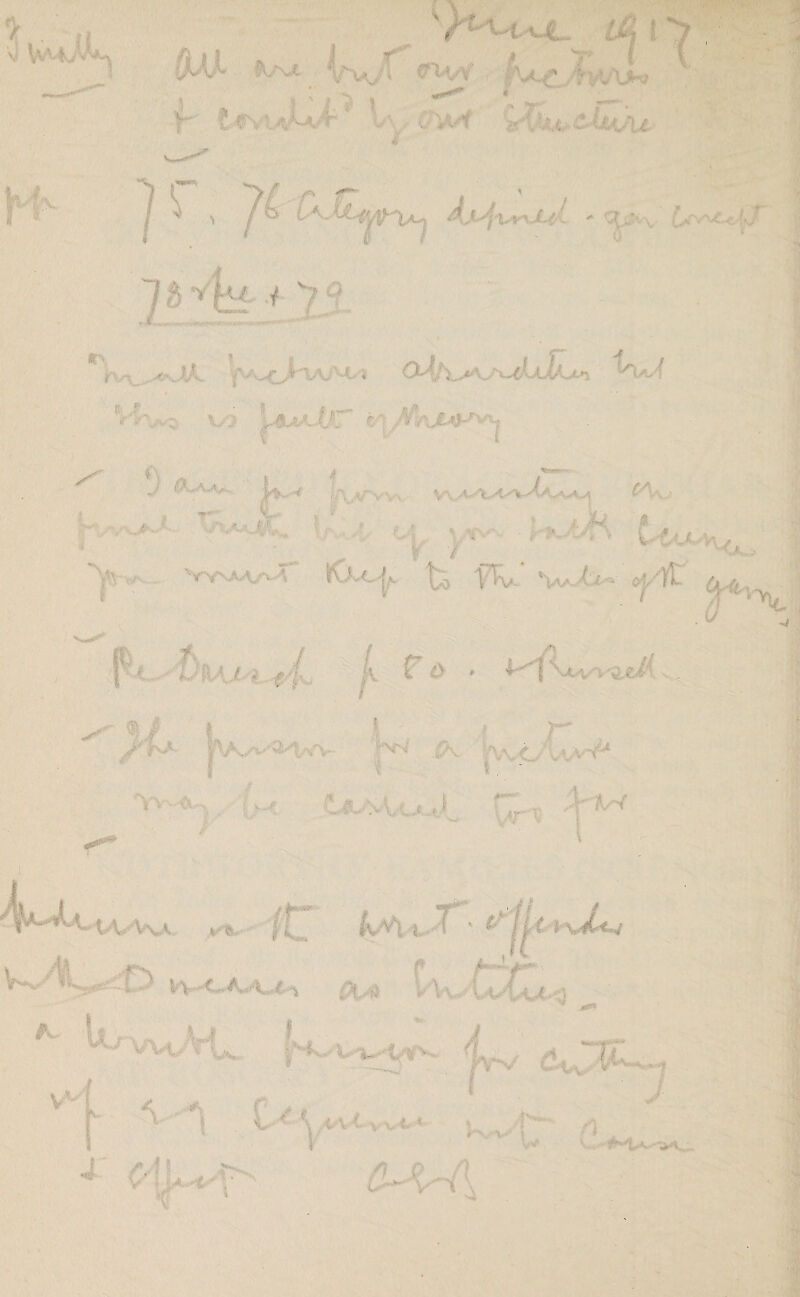 June 1917
Finally All are but our pictures
& condit^d by our Structure
pp 75, 76 Category defined - gen Concept
78 & 79
In all pictures absurdities but
this is fault of theory
I am far from insisting on
final truth but if you talk Science
you must Keep to the rules of the game
Re Driesch p 80. & Russell
The passion for a picture
may be carried too far
Medicine is the worst offender
with Diseases as Entities
a terrible passion for cutting
up Sequence into Cause
& Effect